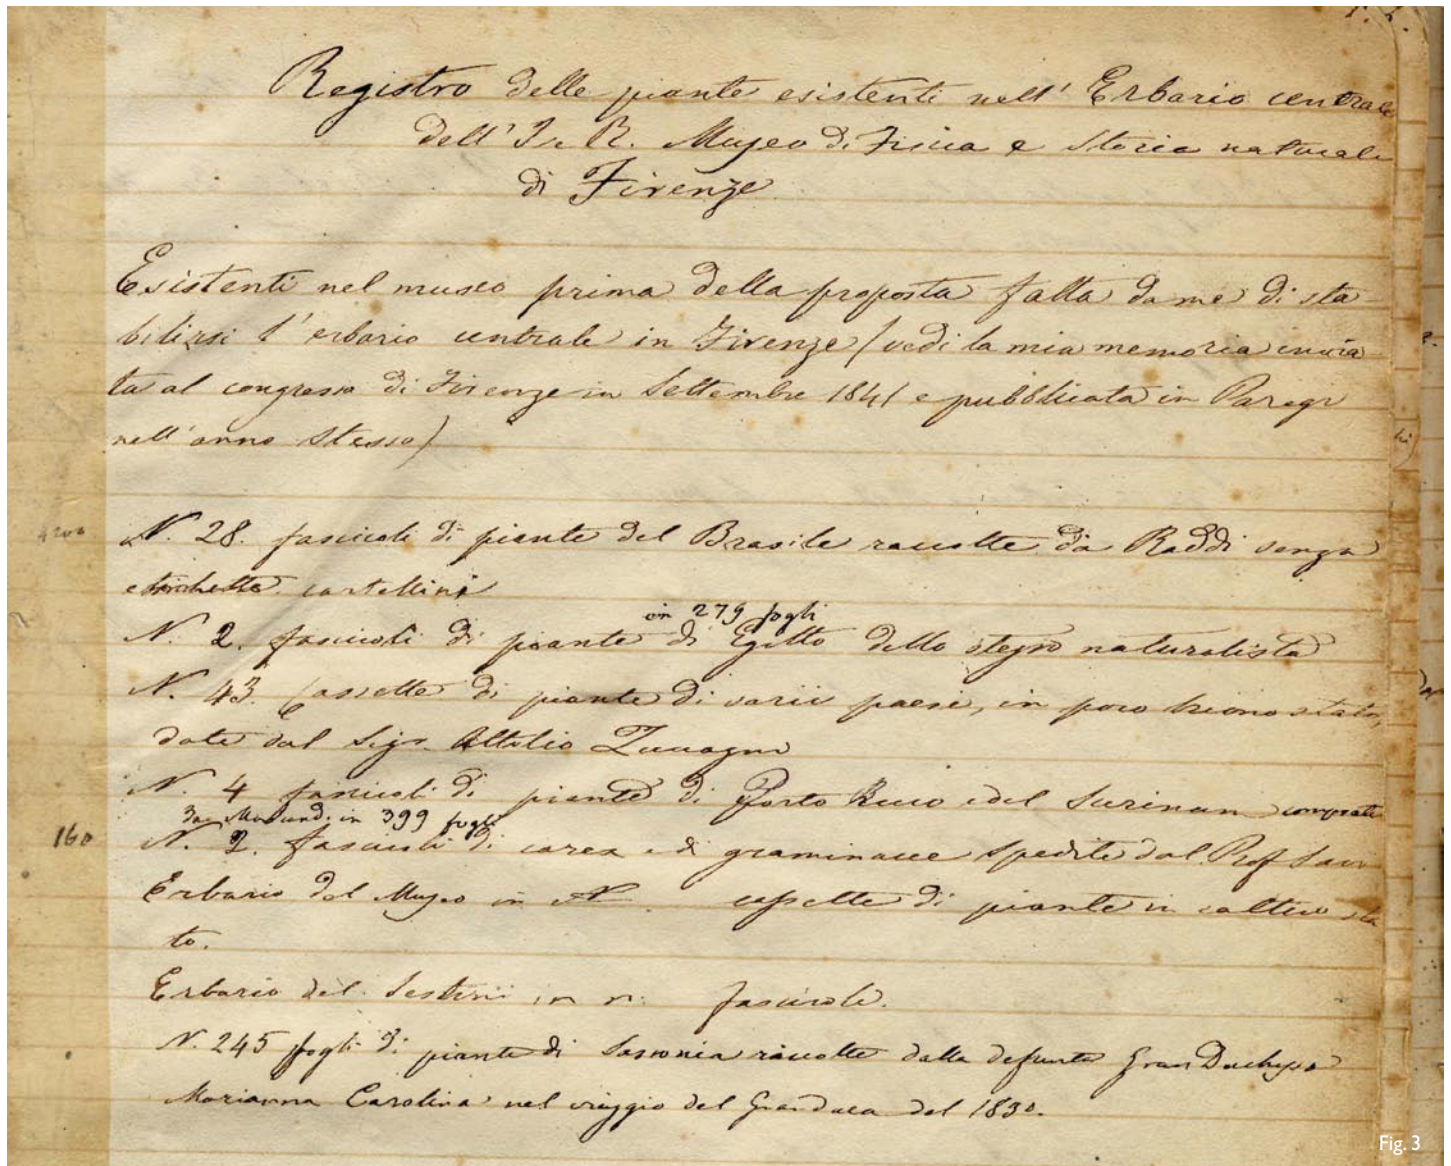 Registro delle piante esistenti nell' Erbario centrale
dell' I. e R. Museo di Fisica e Storia naturale
di Firenze
Esistenti nel museo prima della proposta fatta da me di sta
bilirsi l' erbario centrale in Firenze (vedi la mia memoria invia
ta al congresso di Firenze in Settembre 1841 e pubblicata in Parigi
nell' anno stesso)
N. 28. fascicoli di piante del Brasile raccolte da Raddi senza
etichette cartellini
in 279 fogli
N. 2. fascicoli di piante di Egitto dello stesso naturalista
N. 43. Cassette di piante di varii paesi, in poco buono stato,
date dal Sigr. Attilio Zuccagni
N. 4 fascicoli di piante di Porto Ricco e del Surinam comprati
da in 399 fogli
160
N. 2. fascicoli di carex e di graminacee spedite dal Prof Savi
Erbario del Museo in N. cassette di piante in cattivo sta
to.
Erbario del Sestini in n. fascicoli.
N. 245 fogli di piante di Sassonia raccolte dalla defunta Gran Duchessa
Marianna Carolina nel viaggio del Granduca del 1830.
Fig. 3